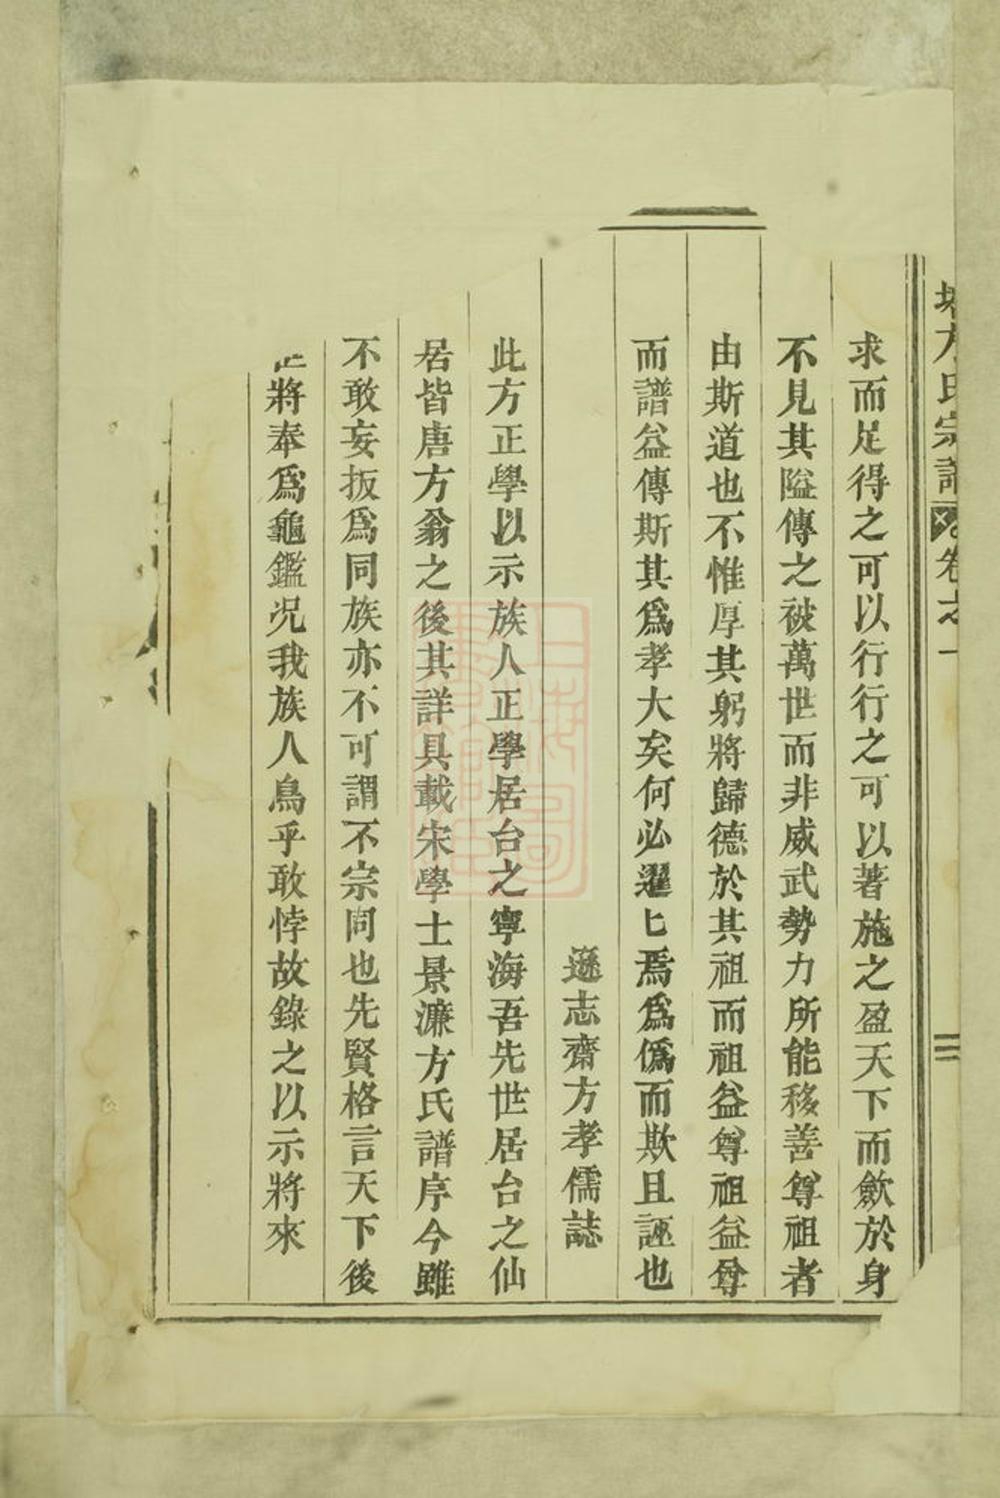 方氏宗譜 卷之一
求而足得之可以行行之可以著施之盈天下而歛於身
不見其隘傳之被萬世而非威武勢力所能移善尊祖者
由斯道也不惟厚其躬將歸德於其祖而祖益尊祖益尊
而譜益傳斯其爲孝大矣何必遲匕焉爲僞而欺且誣也
遜志齋方孝儒誌
此方正學以示族人正學居台之寧海吾先世居台之仙
居皆唐方翁之後其詳具載宋學士景濂方氏譜序今雖
不敢妄扳爲同族亦不可謂不宗同也先賢格言天下後
世將奉爲龜鑑况我族人烏乎敢悖故錄之以示將來